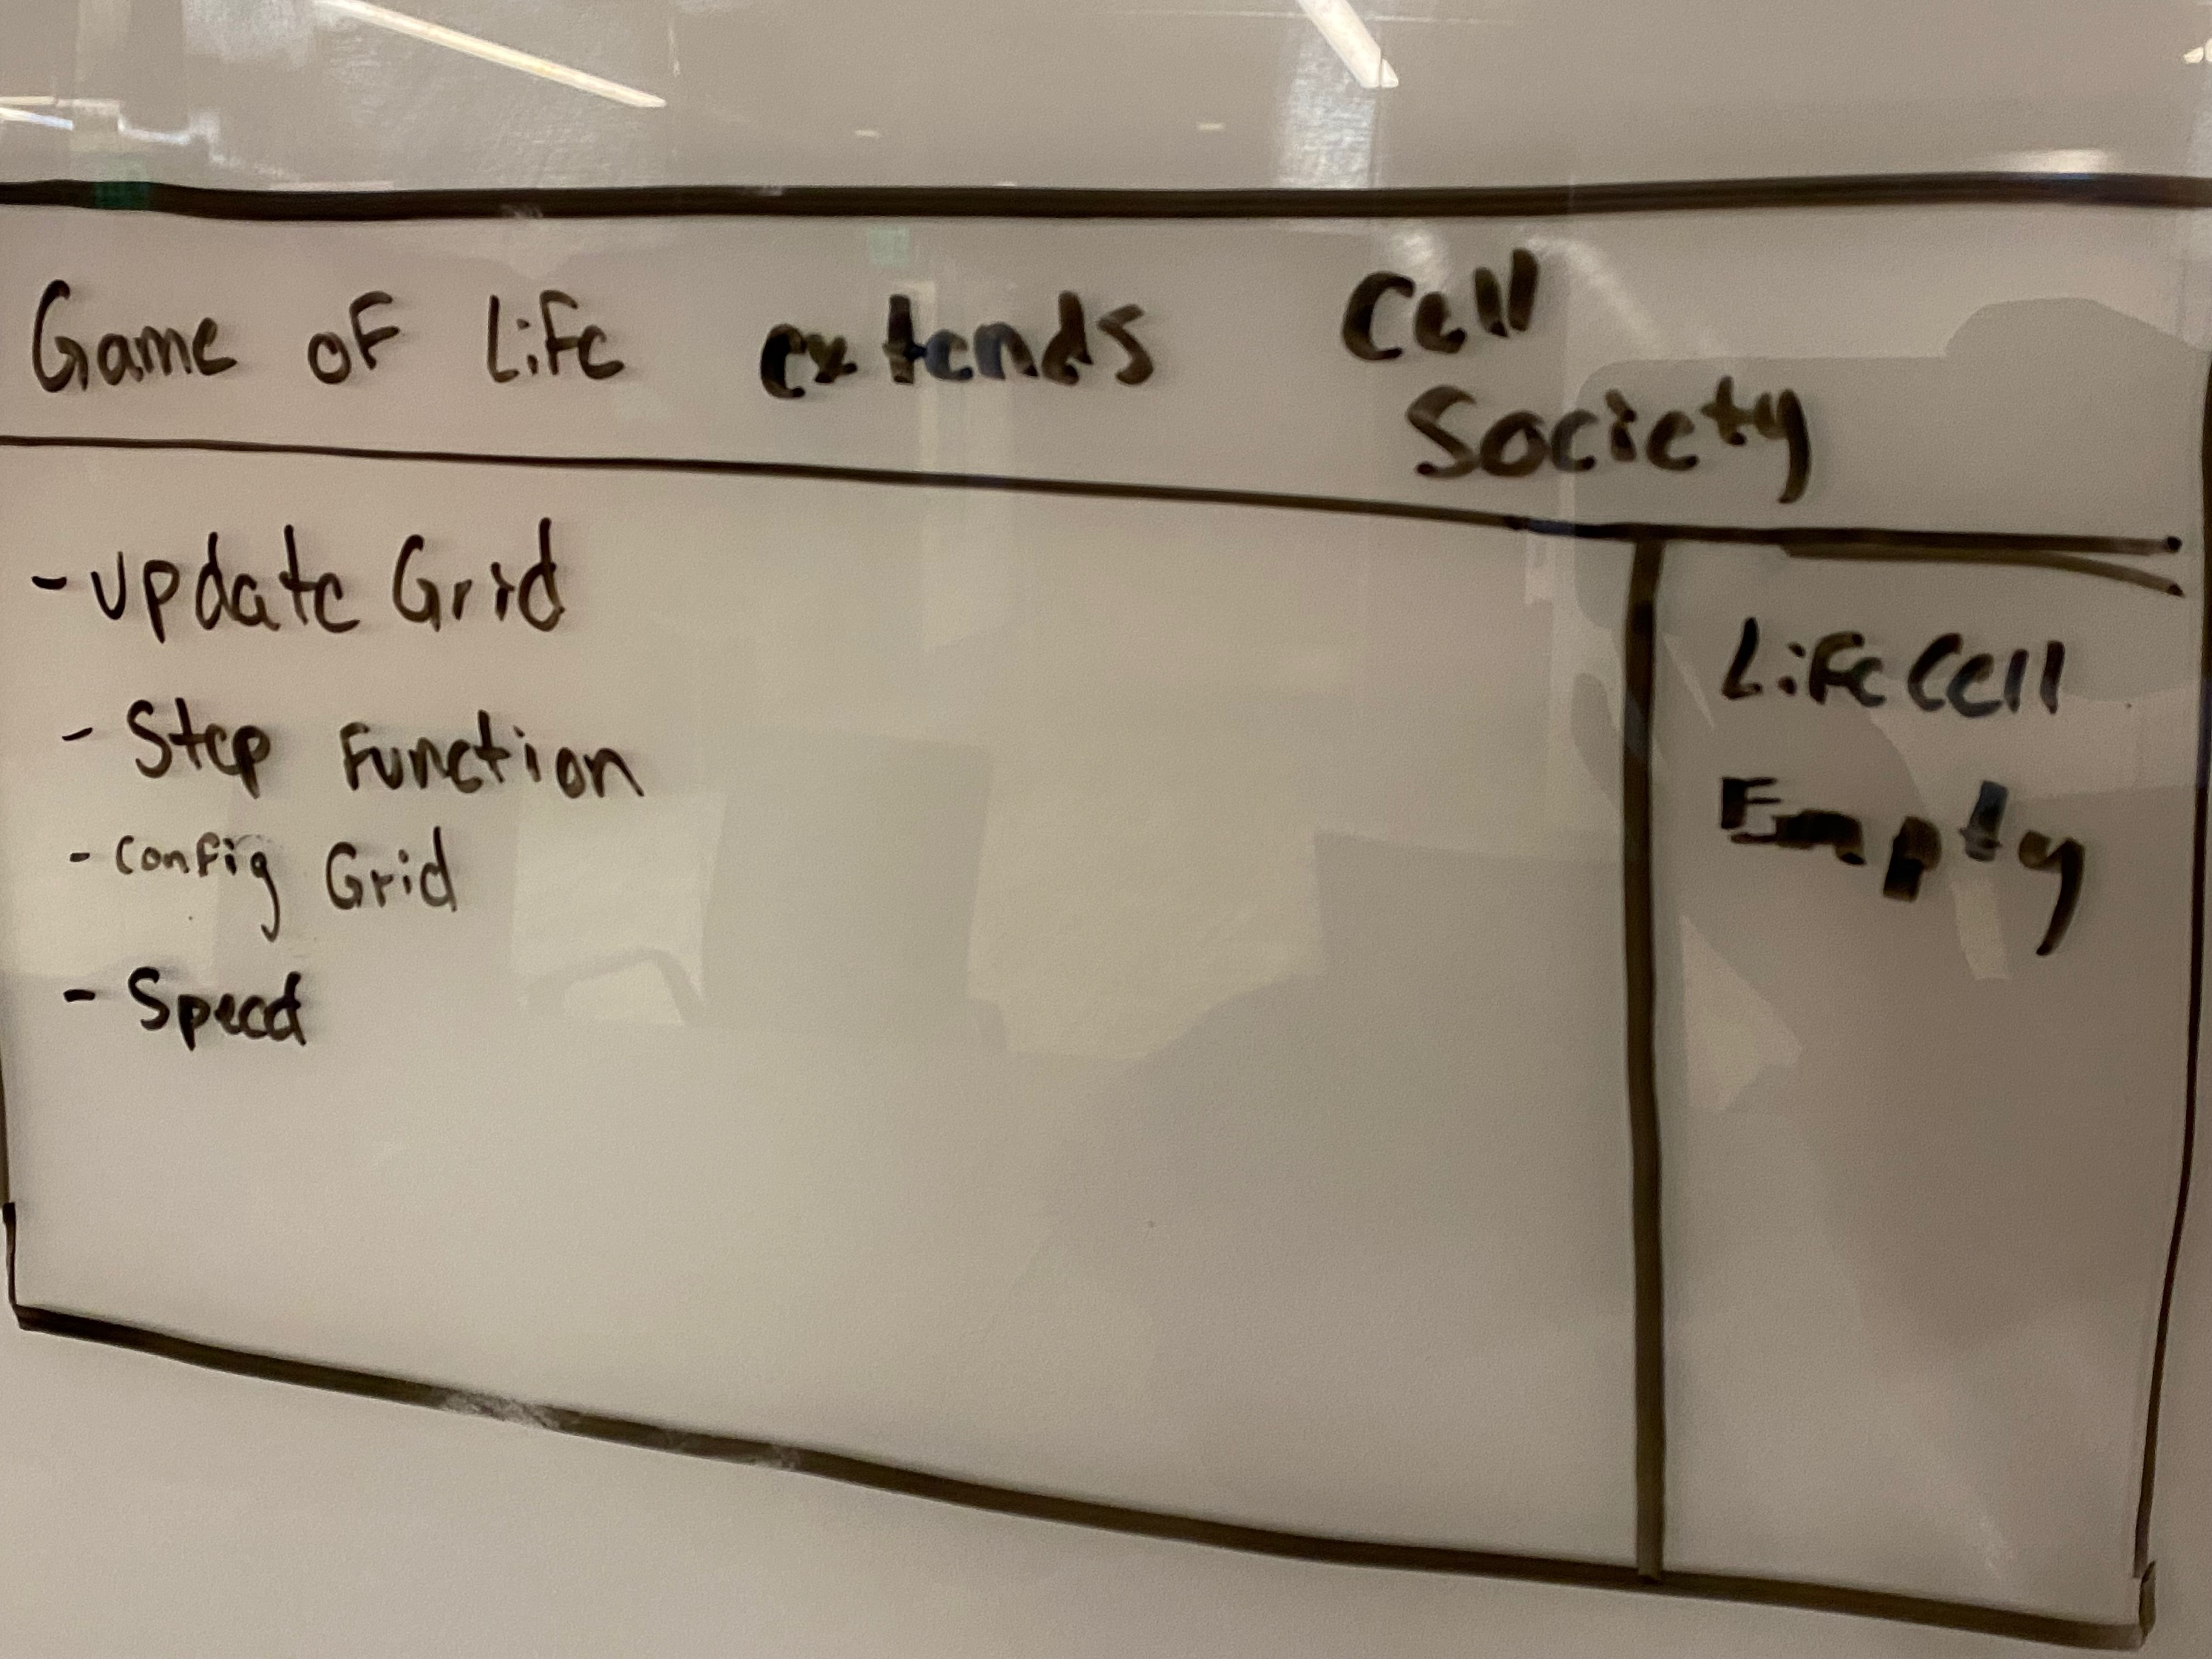 Game of Life extends Cell
Society
- Update Grid
- Step Function
- Config Grid
- Speed
Life Cell
Empty